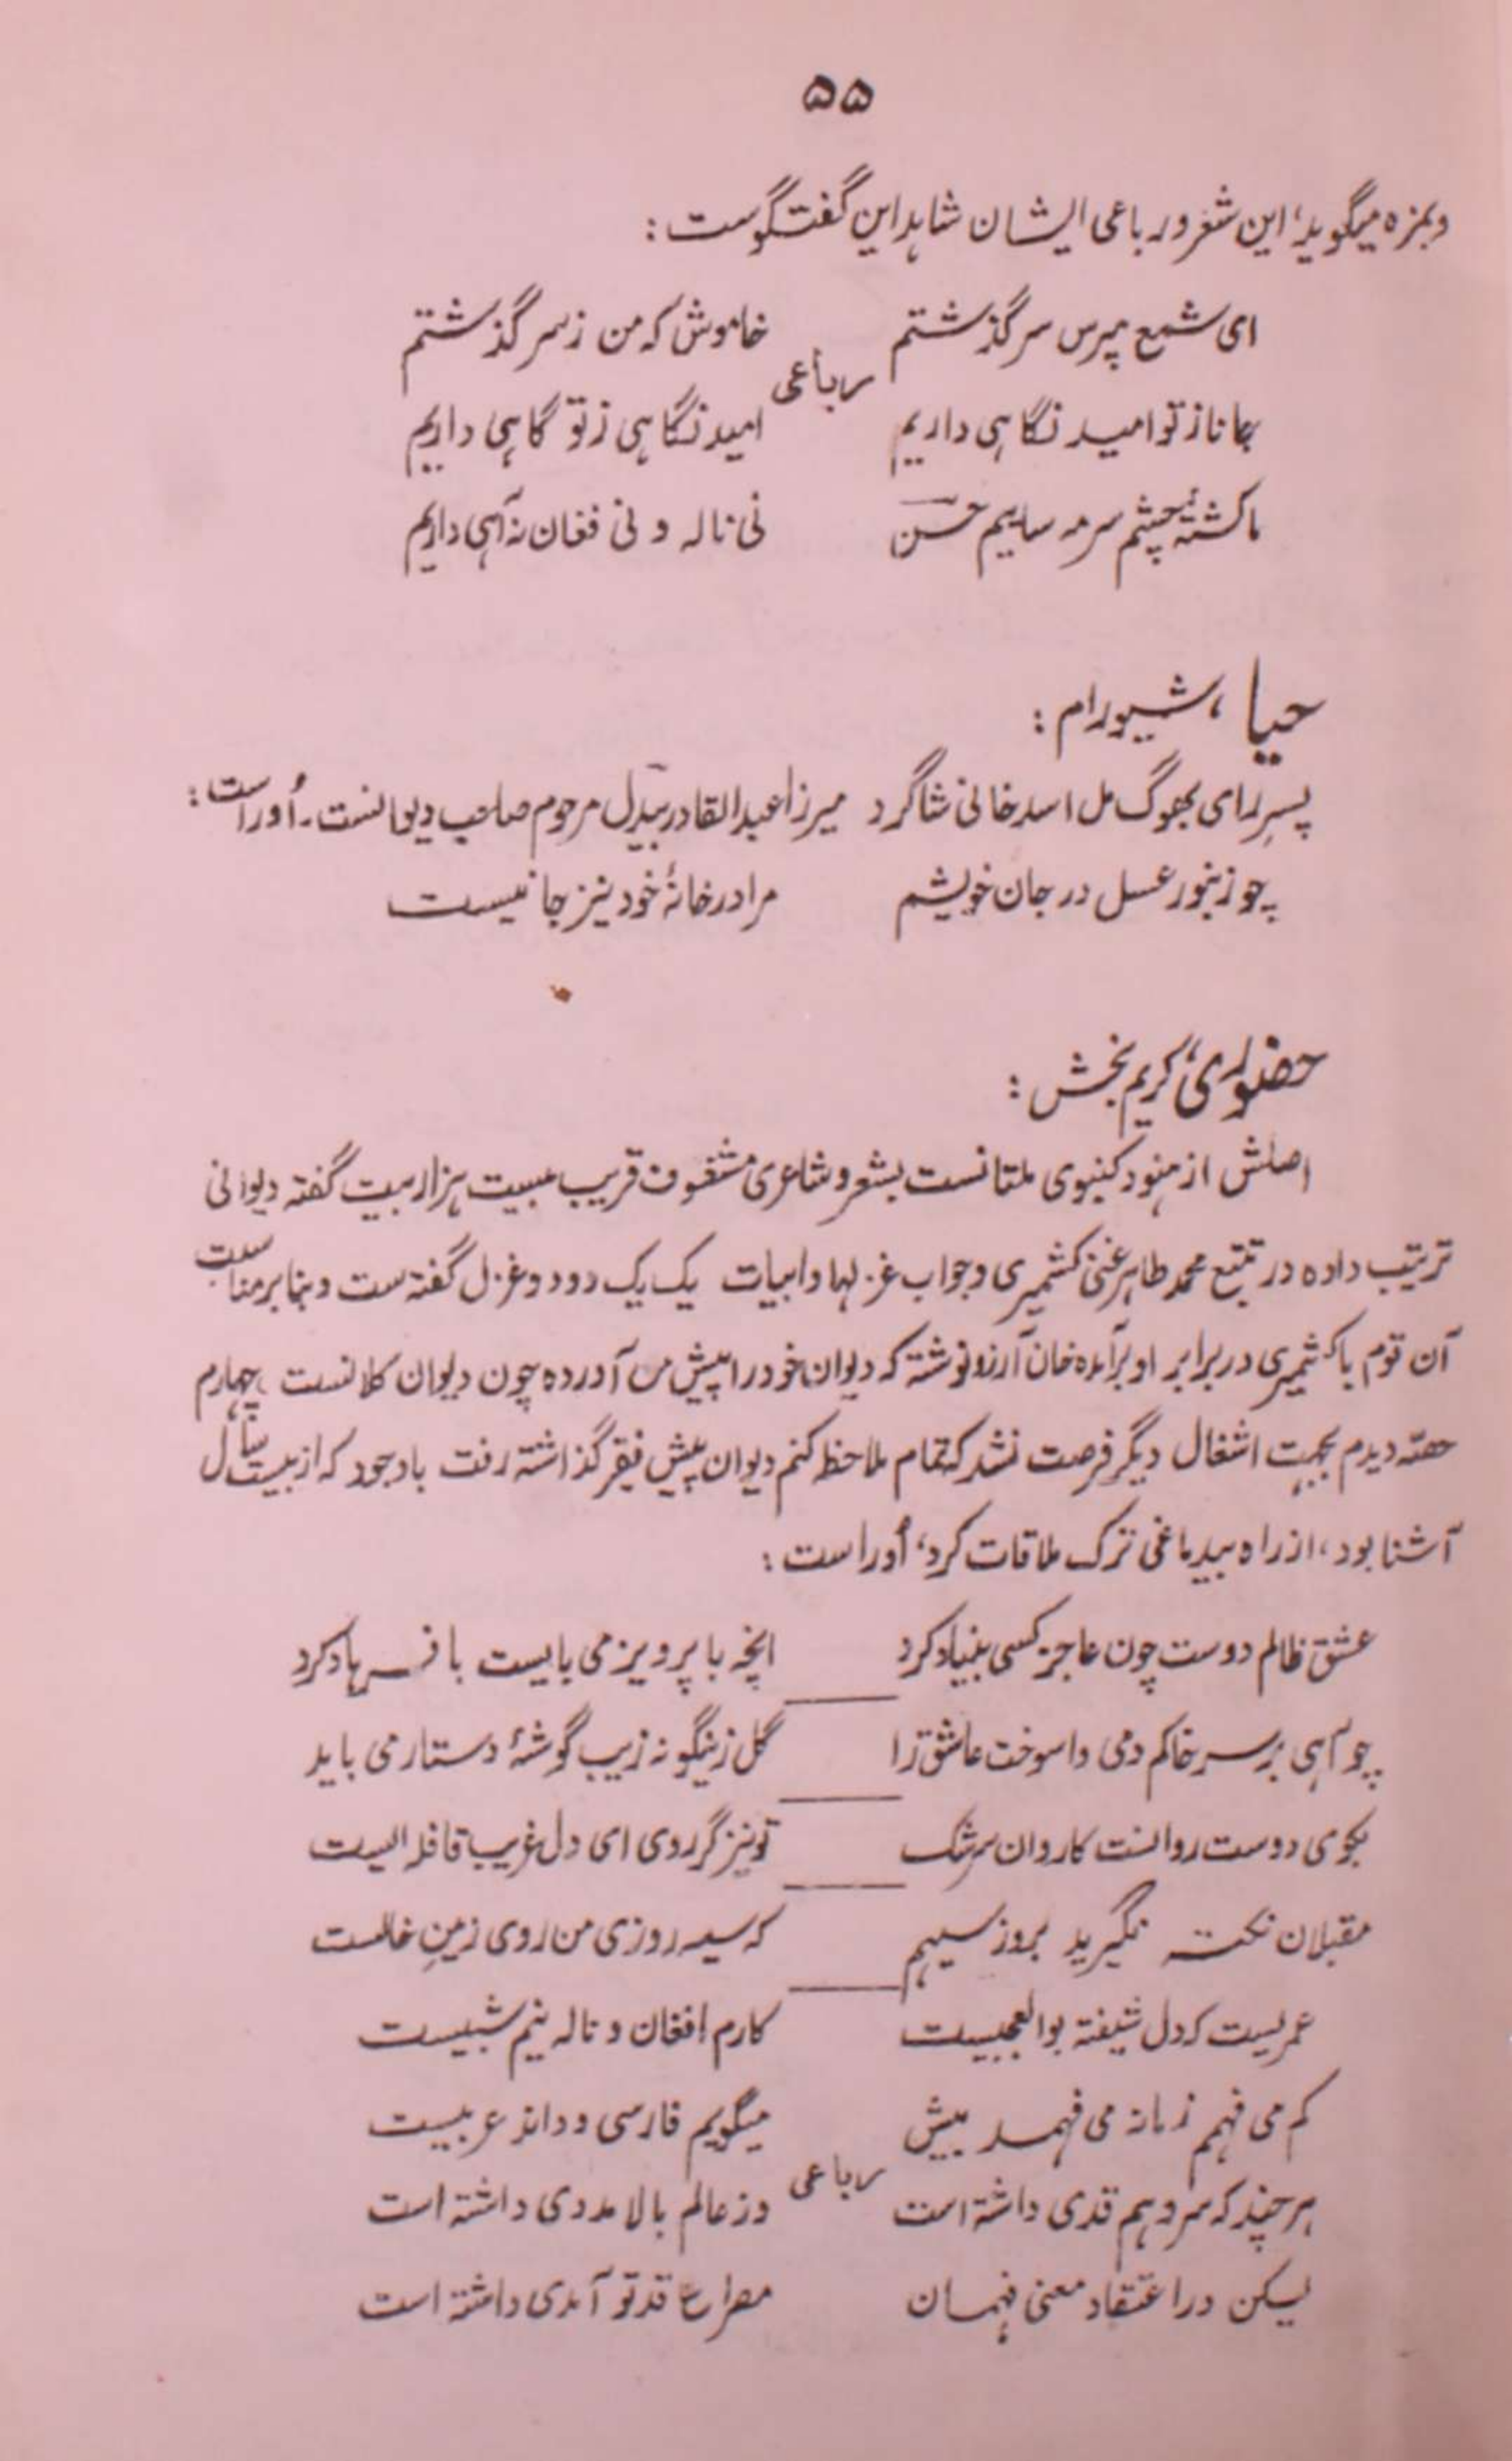 ۵۵
وبمزه میگوید، این شعر و رباعی ایشان شاهد این گفتگوست :
ای شمع مپرس سرگذشتم خاموش که من ز سر گذشتم
رباعی
جانا ز تو امید نگاهی داریم امید نگاهی ز تو گاهی داریم
ما کشتهٔ چشم سرمه ساییم حسن نی ناله و نی فغان نه آهی داریم
حیا ، شیورام :
پسرِ رای بھوگ مل اسد خانی شاگرد میرزا عبدالقادر بیدل مرحوم صاحب دیوانست ـ اُوراست :
چو زنبور عسل در جان خویشم مرا در خانهٔ خود نیز جا نیست
حضوری، کریم بخش :
اصلش از هنود کنبوی ملتانست بشعر و شاعری مشغوف قریب بیست هزار بیت گفته دیوانی
ترتیب داده در تتبع محمد طاهر غنی کشمیری و جواب غزلها و ابیات یک یک دو دو غزل گفته ست و بنا بر مناسبت
آن قوم با کشمیری در برابر او برآمده خان آرزو نوشته که دیوان خود را پیش من آورده چون دیوان کلانست ، چهارم
حصّه دیدم بجهت اشغال دیگر فرصت نشد که تمام ملاحظه کنم دیوان پیش فقیر گذاشته رفت باوجود که از بیست سال
آشنا بود ، از راه بیدماغی ترک ملاقات کرد، اُوراست :
عشق ظالم دوست چون عاجز کسی بنیاد کرد انچه با پرویز می بایست با فرهاد کرد
چو آهی بر سر خاکم دمی واسوخت عاشق را گل زینگونه زیب گوشهٔ دستار می باید
بکوی دوست روانست کاروان سرشک تو نیز گر روی ای دل غریب قافله ایست
مقبلان نکته نگیرید بروز سیهم که سیه روزی من روی زمینِ خالست
عمریست که دل شیفته بوالعجبیست کارم افغان و ناله نیم شبیست
کم می فهمم زمانه می فهمد بیش میگویم فارسی و داند عربیست
رباعی
هر چند که سرو هم قدی داشته است وز عالم بالا مددی داشته است
لیکن در اعتقاد معنی فهمان مصراع قد تو آمدی داشته است